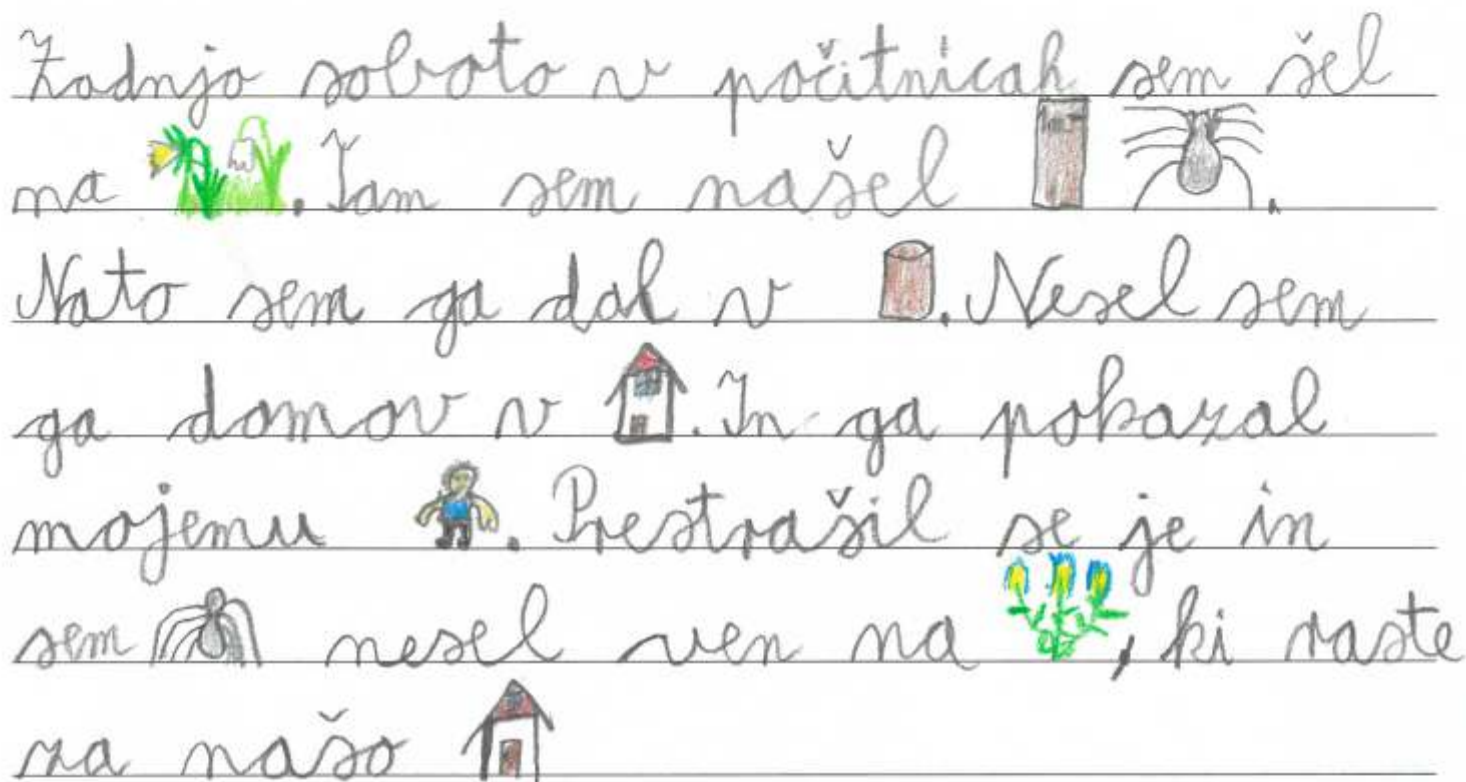 Zadnjo soboto v počitnicah sem šel
na . Tam sem našel .
Nato sem ga dal v . Nesel sem
ga domov v . In ga pokazal
mojemu . Prestrašil se je in
sem nesel ven na , ki raste
za našo